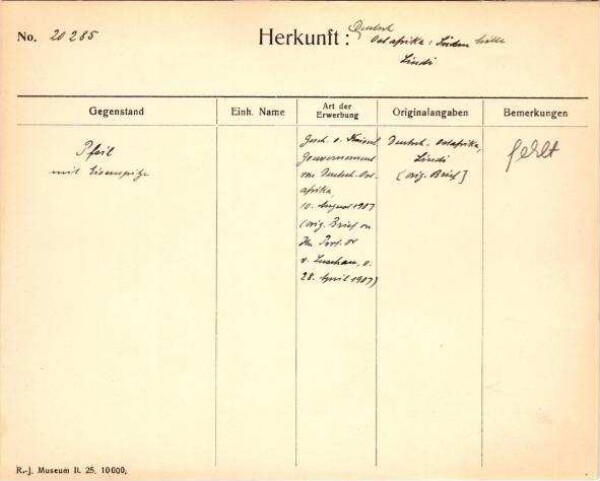 No. 20285
Herkunft: Deutsch
Ostafrika: Süden
Lindi
Gegenstand
Einh. Name
Art der
Erwerbung
Originalangaben
Bemerkungen
Pfeil
mit Eisenspitze
Gesch. v. Kaiserl.
Gouvernement
von Deutsch-Ost-
afrika,
10. August 1907
(orig. Brief an
Hn Prof. Dr
v. Luschan, v.
28. April 1907)
Deutsch. Ostafrika,
Lindi
(orig. Brief]
fehlt
R.-J. Museum II. 25. 10000.